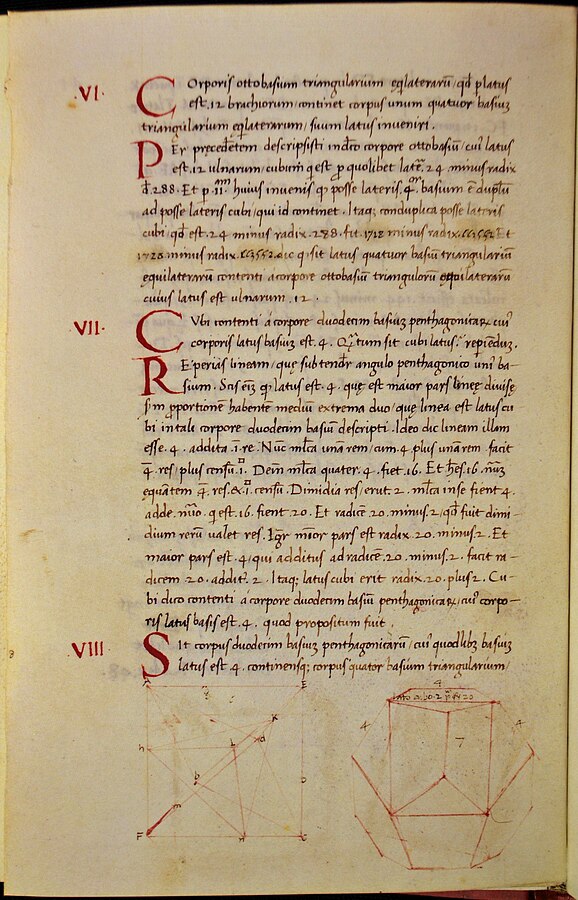 .VI. COrporis ottobasium triangularium eq̃laterarũ, qđ p latus
est .12 brachiorum, continet corpus unum quatuor basiuȝ
triangularium eq̃laterarum, suum latus inveniri.
PEr precedẽtem descripsisti indc̃o corpore ottobasiũ, cui' latus
est .12 ulnarum, cubum q est p quolibet late .24 minus radix
đ .288. Et p .11. huius invenis q posse lateris .4. basium ẽ duplũ
ad posse lateris cubi, qui id continet. Itaq; conduplica posse lateris
cubi qđ est .24 minus radix .288. fit
minus radix dic q sit latus quatuor basiũ triangulariũ
equilateraruȝ contenti a corpore ottobasiũ triangulorũ equilaterarũ
cuius latus est ulnarum .12.
VII. CUbi contenti a corpore duodecim basiuȝ penthagonicarꝝ cui'
corporis latus basiuȝ est .4. Qtum sit cubi latus, repiẽduȝ.
REperias lineam, que subtendit angulo penthagonico uni' ba-
sium. Scis eiȝ q latus est .4. que est maior pars linee divise
sm pportionẽ habentẽ mediuȝ extrema duo, que linea est latus cu
bi in tali corpore duodecim basiuȝ descripti. Ideo dic lineam illam
esse .4. addita .1. re. Nuc mlt̃ca unã rem, cum .4. plus unã rem. facit
.4. res, plus censũ .1. Dem̃ mlt̃ca quater .4. fiet .16. Et hẽs .16. nũȝ
equãtem .4. res & .1. censũ. Dimidia res, erut .2. mlt̃ca inse fient .4.
adde nũo. q est .16. fient .20. Et radice .20. minus .2. qđ fuit dimi-
dium rerũ valet res. Igr mĩor pars est radix .20. minus .2. Et
maior pars est .4, qui additus ad radicẽ .20. minus .2. facit ra-
dicem .20. addit .2. Itaq; latus cubi erit radix .20. plus 2. Cu-
bi dico contenti a corpore duodecim basiũ penthagonicarꝝ, cui' corpo-
ris latus basis est .4. quod propositum fuit.
VIII SIt corpus duodecim basiuȝ penthagonicarũ, cui' quodlibȝ basiuȝ
latus est .4. continensq; corpus quator basium triangularium,
A E K h L d b D m F H C
4 4 4 7